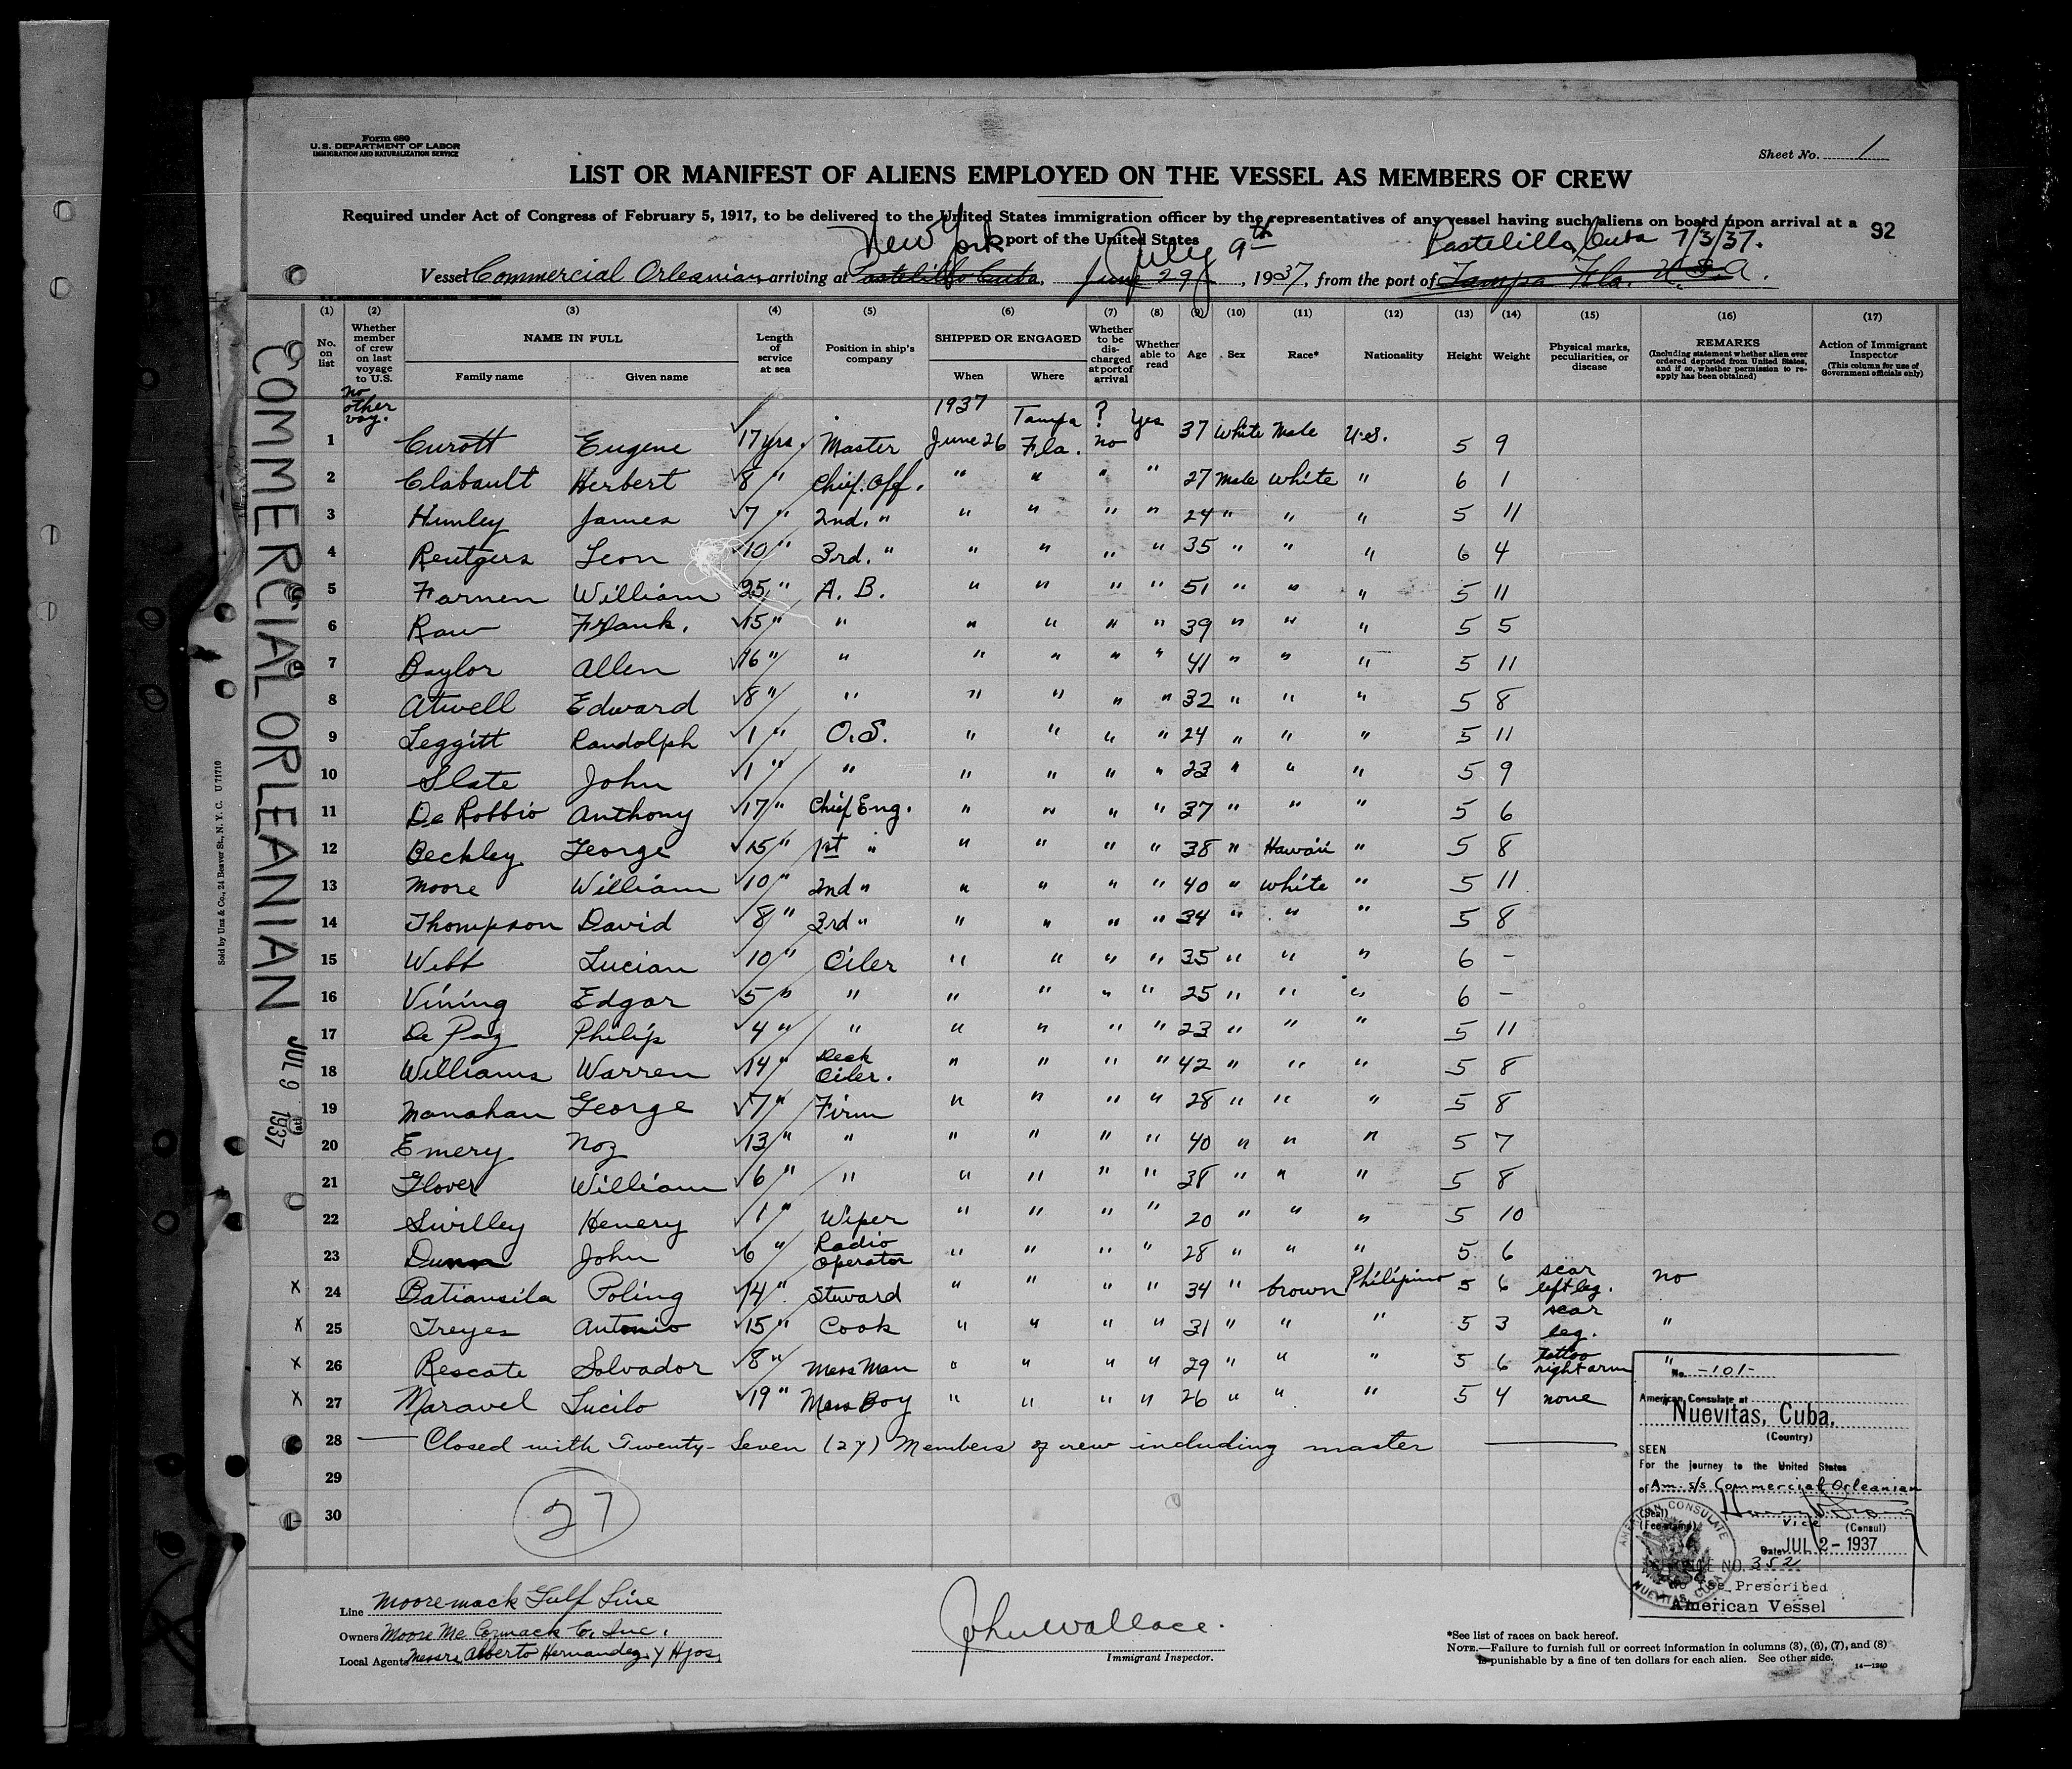 Form 680
U.S. DEPARTMENT OF LABOR
IMMIGRATION AND NATURALIZATION SERVICE
Sheet No. 1
LIST OR MANIFEST OF ALIENS EMPLOYED ON THE VESSEL AS MEMBERS OF CREW
Required under Act of Congress of February 5, 1917, to be delivered to the United States immigration officer by the representatives of any vessel having such aliens on board upon arrival at a
port of the United States
92
New York July 9th Pastelillo, Cuba 7/3/37.
Vessel Commercial Orleanian, arriving at Pastelillo Cuba, June 29, 1937, from the port of Tampa Fla. U.S.A.
(1) (2) (3) (4) (5) (6) (7) (8) (9) (10) (11) (12) (13) (14) (15) (16) (17)
No. on list
Whether member of crew on last voyage to U.S.
NAME IN FULL
Family name Given name
Length of service at sea
Position in ship's company
SHIPPED OR ENGAGED
When Where
Whether to be discharged at port of arrival
Whether able to read
Age Sex Race* Nationality Height Weight
Physical marks, peculiarities, or disease
REMARKS
(Including statement whether alien ever ordered deported from United States, and if so, whether permission to reapply has been obtained)
Action of Immigrant Inspector
(This column for use of Government officials only)
no other voy.
1937 Tampa ? Yes
1 Curott Eugene 17 yrs. Master June 26 Fla. no 37 White Male U.S. 5 9
2 Clabault Herbert 8 " Chief. Off. " " " " 27 Male White " 6 1
3 Humley James 7 " 2nd. " " " " " 24 " " " 5 11
4 Rentgers Leon 10 " 3rd. " " " " " 35 " " " 6 4
5 Farnen William 25 " A. B. " " " " 51 " " " 5 11
6 Raw Frank. 15 " " " " " " 39 " " " 5 5
7 Baylor Allen 16 " " " " " " 41 " " " 5 11
8 Atwell Edward 8 " " " " " " 32 " " " 5 8
9 Leggitt Randolph 1 " O.S. " " " " 24 " " " 5 11
10 Slate John 1 " " " " " " 23 " " " 5 9
11 De Robbio Anthony 17 " Chief Eng. " " " " 37 " " " 5 6
12 Beckley George 15 " 1st " " " " " 38 " Hawaii " 5 8
13 Moore William 10 " 2nd " " " " " 40 " White " 5 11
14 Thompson David 8 " 3rd " " " " " 34 " " " 5 8
15 Webb Lucian 10 " Oiler " " " " 35 " " " 6 -
16 Vining Edgar 5 " " " " " " 25 " " " 6 -
17 De Paz Philip 4 " " " " " " 23 " " " 5 11
18 Williams Warren 14 " Deck Oiler. " " " " 42 " " " 5 8
19 Monahan George 7 " Firm " " " " 28 " " " 5 8
20 Emery Noz 13 " " " " " " 40 " " " 5 7
21 Glover William 6 " " " " " " 38 " " " 5 8
22 Swilley Henery 1 " Wiper " " " " 20 " " " 5 10
23 Dunn John 6 " Radio Operator " " " " 28 " " " 5 6
x 24 Batiansila Poling 14 " Steward " " " " 34 " brown Philipino 5 6 scar left leg. no
x 25 Treyes Antonio 15 " Cook " " " " 31 " " " 5 3 scar leg. "
x 26 Rescate Salvador 8 " Mess Man " " " " 29 " " " 5 6 Tattoo right arm "
x 27 Maravel Lucilo 19 " Mess Boy " " " " 26 " " " 5 4 none "
28 Closed with Twenty-Seven (27) Members of crew including master
29
30
27
COMMERCIAL ORLEANIAN
JUL 9 1937
Sold by Unz & Co., 24 Beaver St., N. Y. C. U 71710
No. -101-
American Consulate at
Nuevitas, Cuba.
(Country)
SEEN
For the journey to the United States
of Am. s/s Commercial Orleanian
(Seal)
(Fee stamp)
Vice (Consul)
Date JUL 2 - 1937
SERVICE NO. 352
No Fee Prescribed
American Vessel
AMERICAN CONSULATE
NUEVITAS, CUBA
Line Mooremack Gulf Line
Owners Moore Mc Cormack Co. Inc.
Local Agents Messrs Alberto Hernandez, y Hjos,
John Wallace.
Immigrant Inspector.
*See list of races on back hereof.
NOTE.—Failure to furnish full or correct information in columns (3), (6), (7), and (8)
is punishable by a fine of ten dollars for each alien. See other side.
14—1240